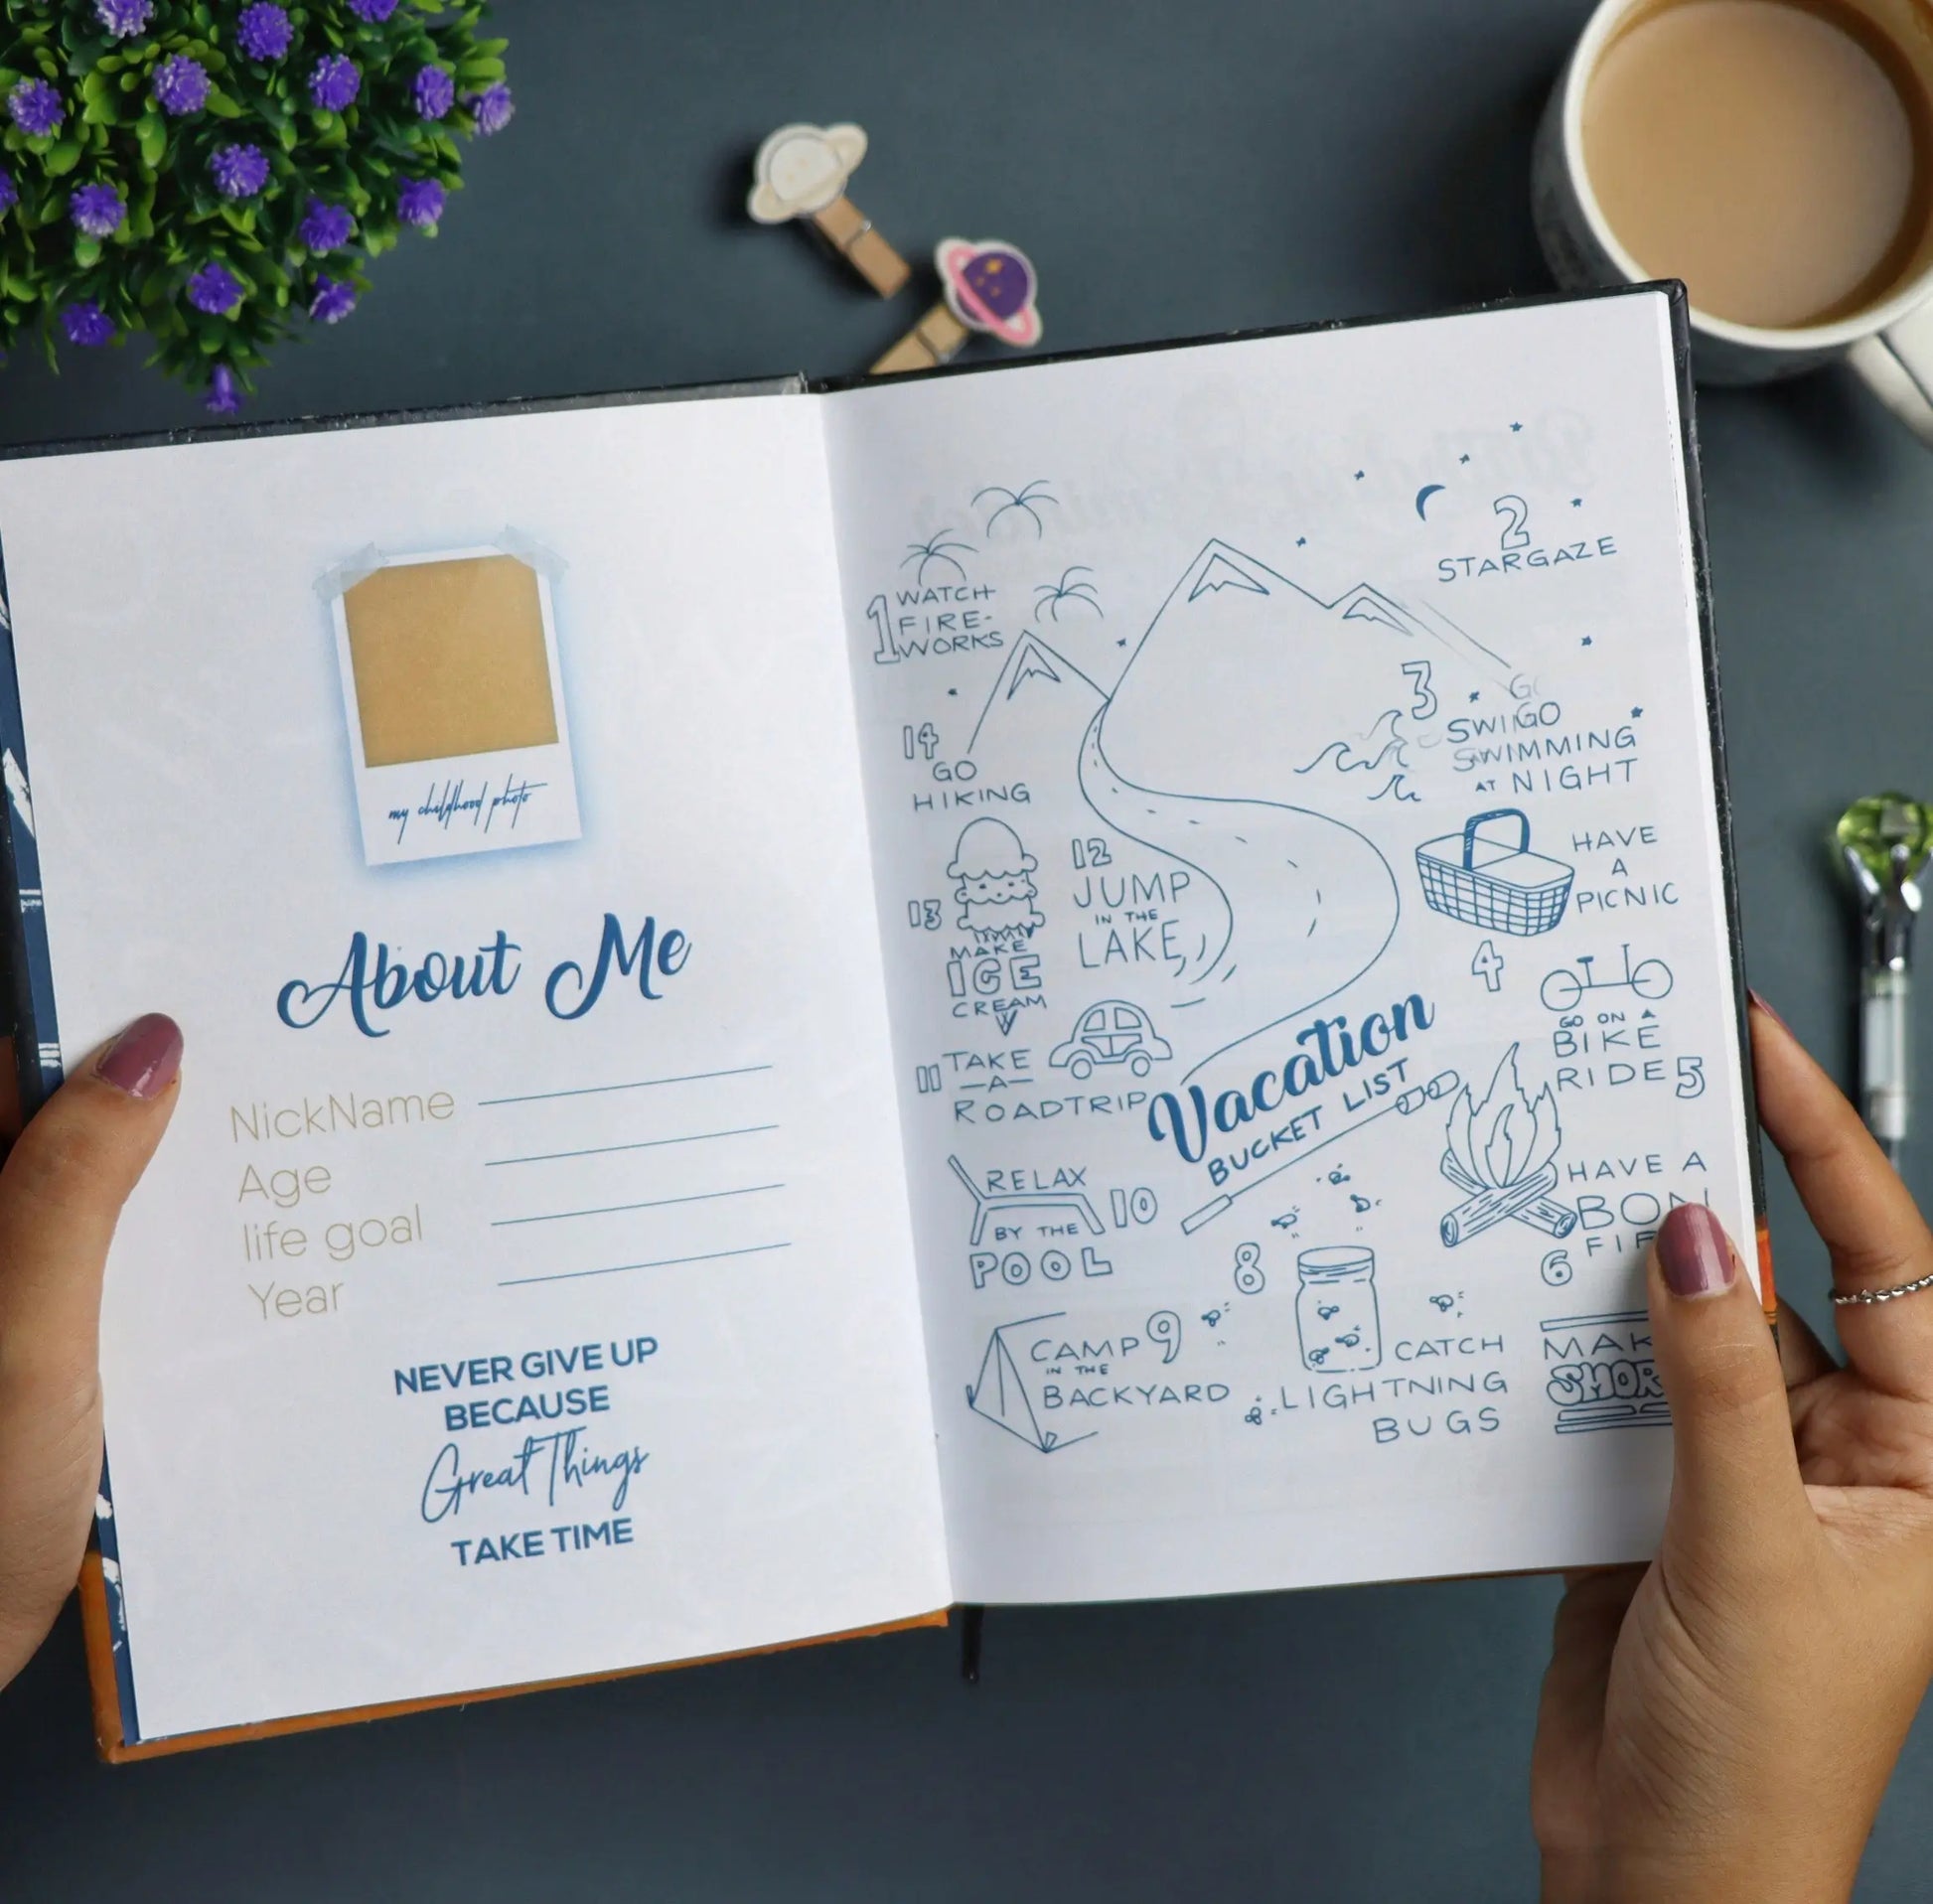 my childhood photo
About Me
NickName
Age
life goal
Year
NEVER GIVE UP
BECAUSE
Great Things
TAKE TIME
1 WATCH
FIRE-
WORKS
2
STARGAZE
3
GO
SWIMMING
AT NIGHT
HAVE
A
PICNIC
4
GO ON A
BIKE
RIDE 5
HAVE A
BON
6
MAK
8
CATCH
LIGHTNING
BUGS
CAMP 9
IN THE
BACKYARD
RELAX
10
BY THE
POOL
11 TAKE
-A-
ROADTRIP
12
JUMP
IN THE
LAKE
13
MAKE
ICE
CREAM
14
GO
HIKING
Vacation
BUCKET LIST